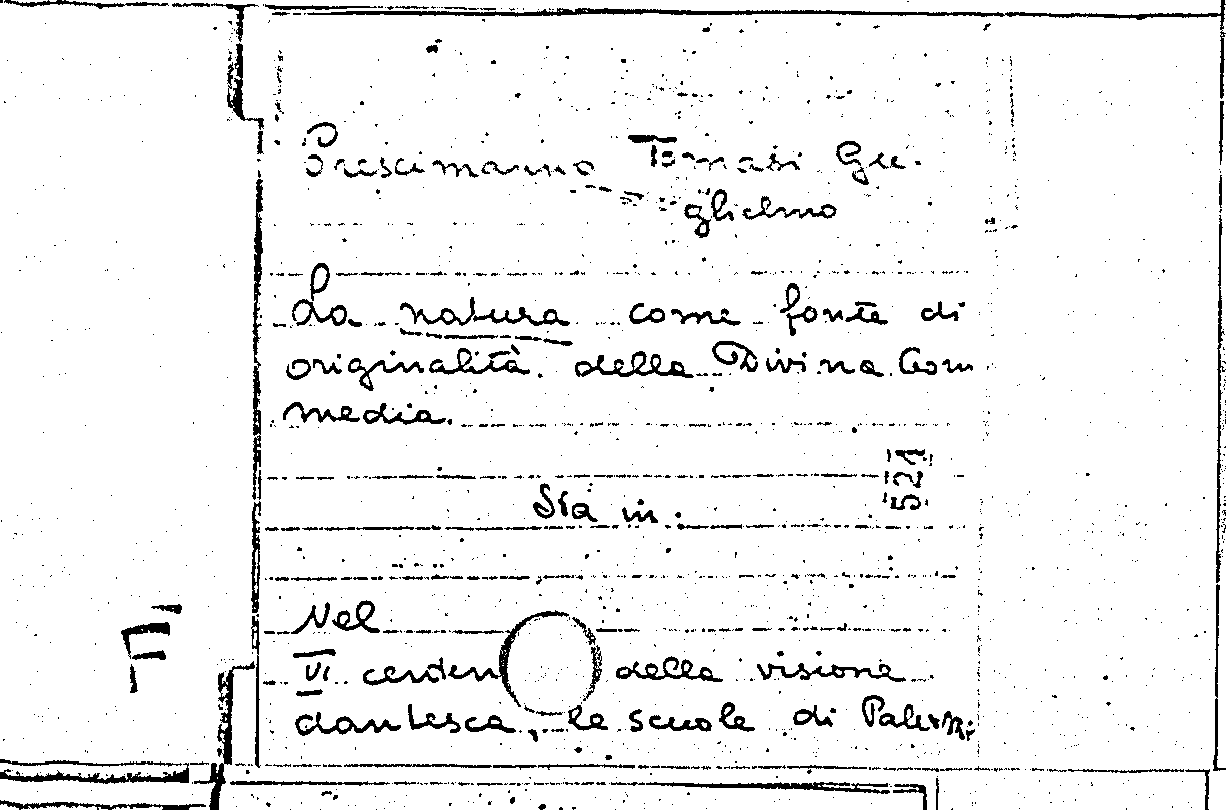 Prescimanno Tomasi Gu-
glielmo
La natura come fonte di
originalità della Divina Com
media.
521
Sta in:
Nel
VI centen della visione
dantesca, le scuole di Palermo
F